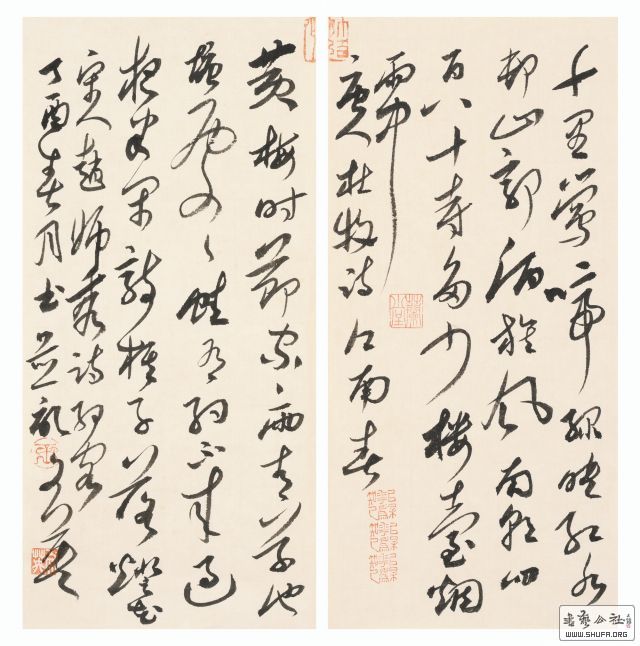 千里鶯啼綠映紅水
村山郭酒旗風南朝四
百八十寺多少樓臺烟
雨中
唐人杜牧诗江南春
黄梅时節家々雨青草池
塘處々蛙有约不来過
夜半閒敲棋子落燈花
宋人趙師秀诗约客
丁酉春月书並記
书艺公社
WWW.SHUFA.ORG